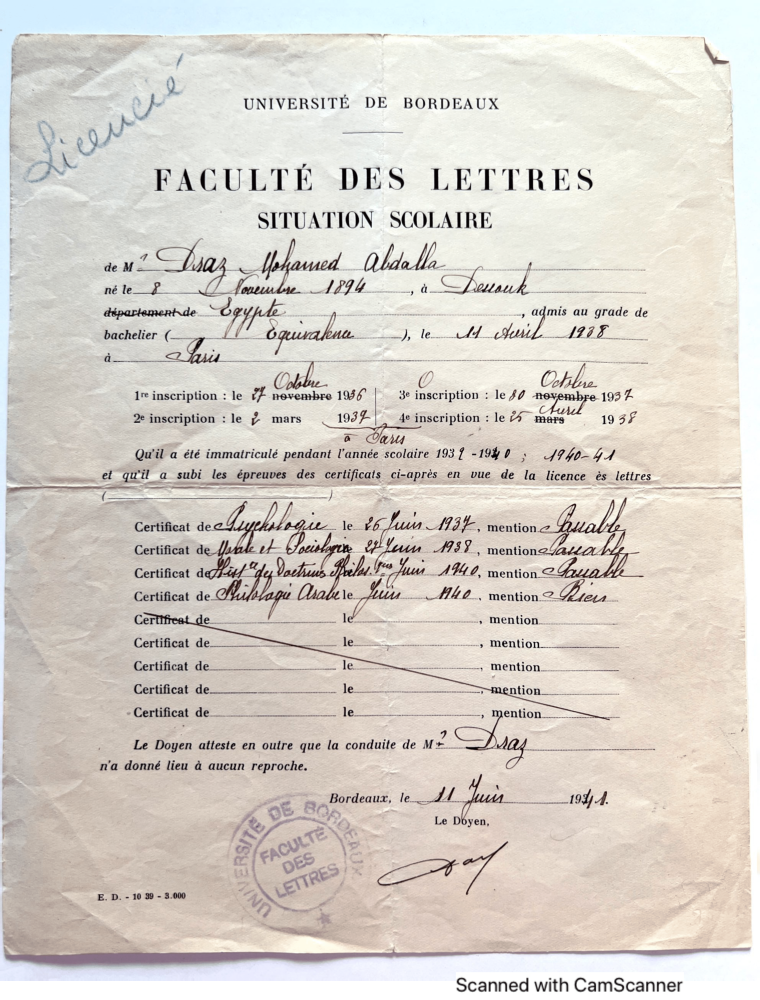 Licencié
UNIVERSITÉ DE BORDEAUX
FACULTÉ DES LETTRES
SITUATION SCOLAIRE
de Mr Draz Mohamed Abdalla
né le 8 Novembre 1894, à Dessouk
département de Egypte, admis au grade de
bachelier (Equivalence), le 11 Avril 1938
à Paris
1re inscription : le 27 Octobre novembre 1936 3e inscription : le 30 Octobre novembre 1937
2e inscription : le 2 mars 1937 4e inscription : le 25 Avril mars 1938
à Paris
Qu'il a été immatriculé pendant l'année scolaire 1939-1940 ; 1940-41
et qu'il a subi les épreuves des certificats ci-après en vue de la licence ès lettres
( )
Certificat de Psychologie le 26 Juin 1937, mention Passable
Certificat de Morale et Sociologie 27 Juin 1938, mention Passable
Certificat de Hist re des Doctrines Philos. Juin 1940, mention Passable
Certificat de Philologie Arabe le Juin 1940, mention Bien
Certificat de le , mention
Certificat de le , mention
Certificat de le , mention
Certificat de le , mention
Certificat de le , mention
Le Doyen atteste en outre que la conduite de Mr Draz
n'a donné lieu à aucun reproche.
Bordeaux, le 11 Juin 1941.
Le Doyen,
UNIVERSITÉ DE BORDEAUX
FACULTÉ
DES
LETTRES
E. D. - 10 39 - 3.000
Scanned with CamScanner